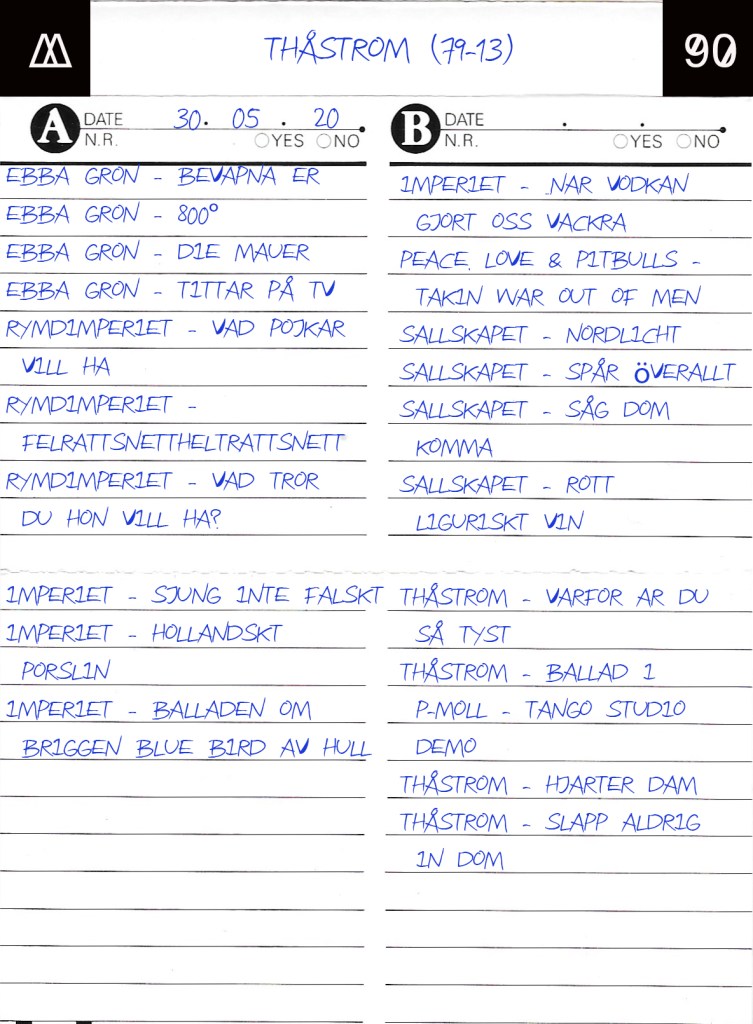 THÅSTROM (79-13)
90
A DATE 30. 05. 20
N.R. YES NO
EBBA GRON - BEVAPNA ER
EBBA GRON - 800°
EBBA GRON - DIE MAUER
EBBA GRON - TITTAR PÅ TV
RYMDIMPERIET - VAD POJKAR
VILL HA
RYMDIMPERIET -
FELRATTSNETTHELTRATTSNETT
RYMDIMPERIET - VAD TROR
DU HON VILL HA?
IMPERIET - SJUNG INTE FALSKT
IMPERIET - HOLLANDSKT
PORSLIN
IMPERIET - BALLADEN OM
BRIGGEN BLUE BIRD AV HULL
B DATE . .
N.R. YES NO
IMPERIET - ..NAR VODKAN
GJORT OSS VACKRA
PEACE, LOVE & PITBULLS -
TAKIN WAR OUT OF MEN
SALLSKAPET - NORDLICHT
SALLSKAPET - SPÅR ÖVERALLT
SALLSKAPET - SÅG DOM
KOMMA
SALLSKAPET - ROTT
LIGURISKT VIN
THÅSTROM - VARFOR AR DU
SÅ TYST
THÅSTROM - BALLAD I
P-MOLL - TANGO STUDIO
DEMO
THÅSTROM - HJARTER DAM
THÅSTROM - SLAPP ALDRIG
IN DOM